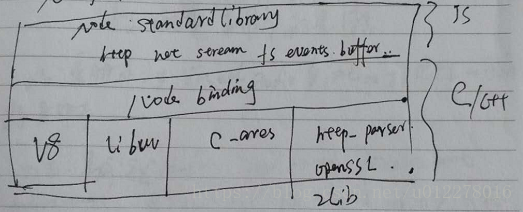 node standard library
http net stream fs events. buffer...
JS
Node binding
C/C++
V8
libuv
C-ares
http-parser
openSSL..
zlib